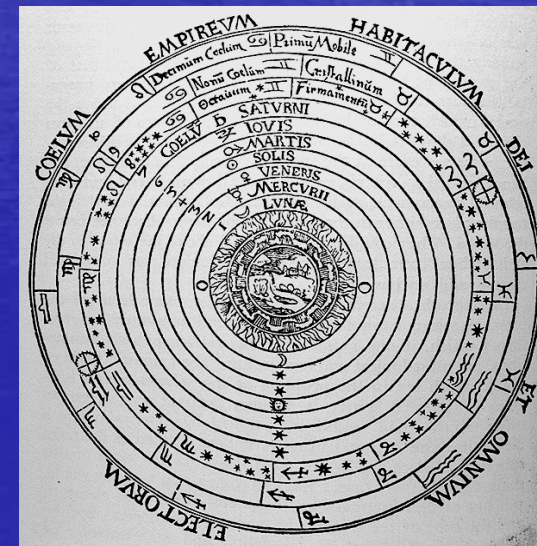 COELVM EMPIREVM HABITACVLVM DEI ET OMNIVM ELECTORVM
Decimum Coelum ♋ Primũ Mobile
Nonũ Coelũm ♊ Cristallinum
Octauum ♊ Firmamentũ ♉
8
7 COELV̄ ♄ SATVRNI
6 ♃ IOVIS
5 ♂ MARTIS
4 ☉ SOLIS
3 ♀ VENERIS
2 ☿ MERCVRII
1 ☽ LVNÆ